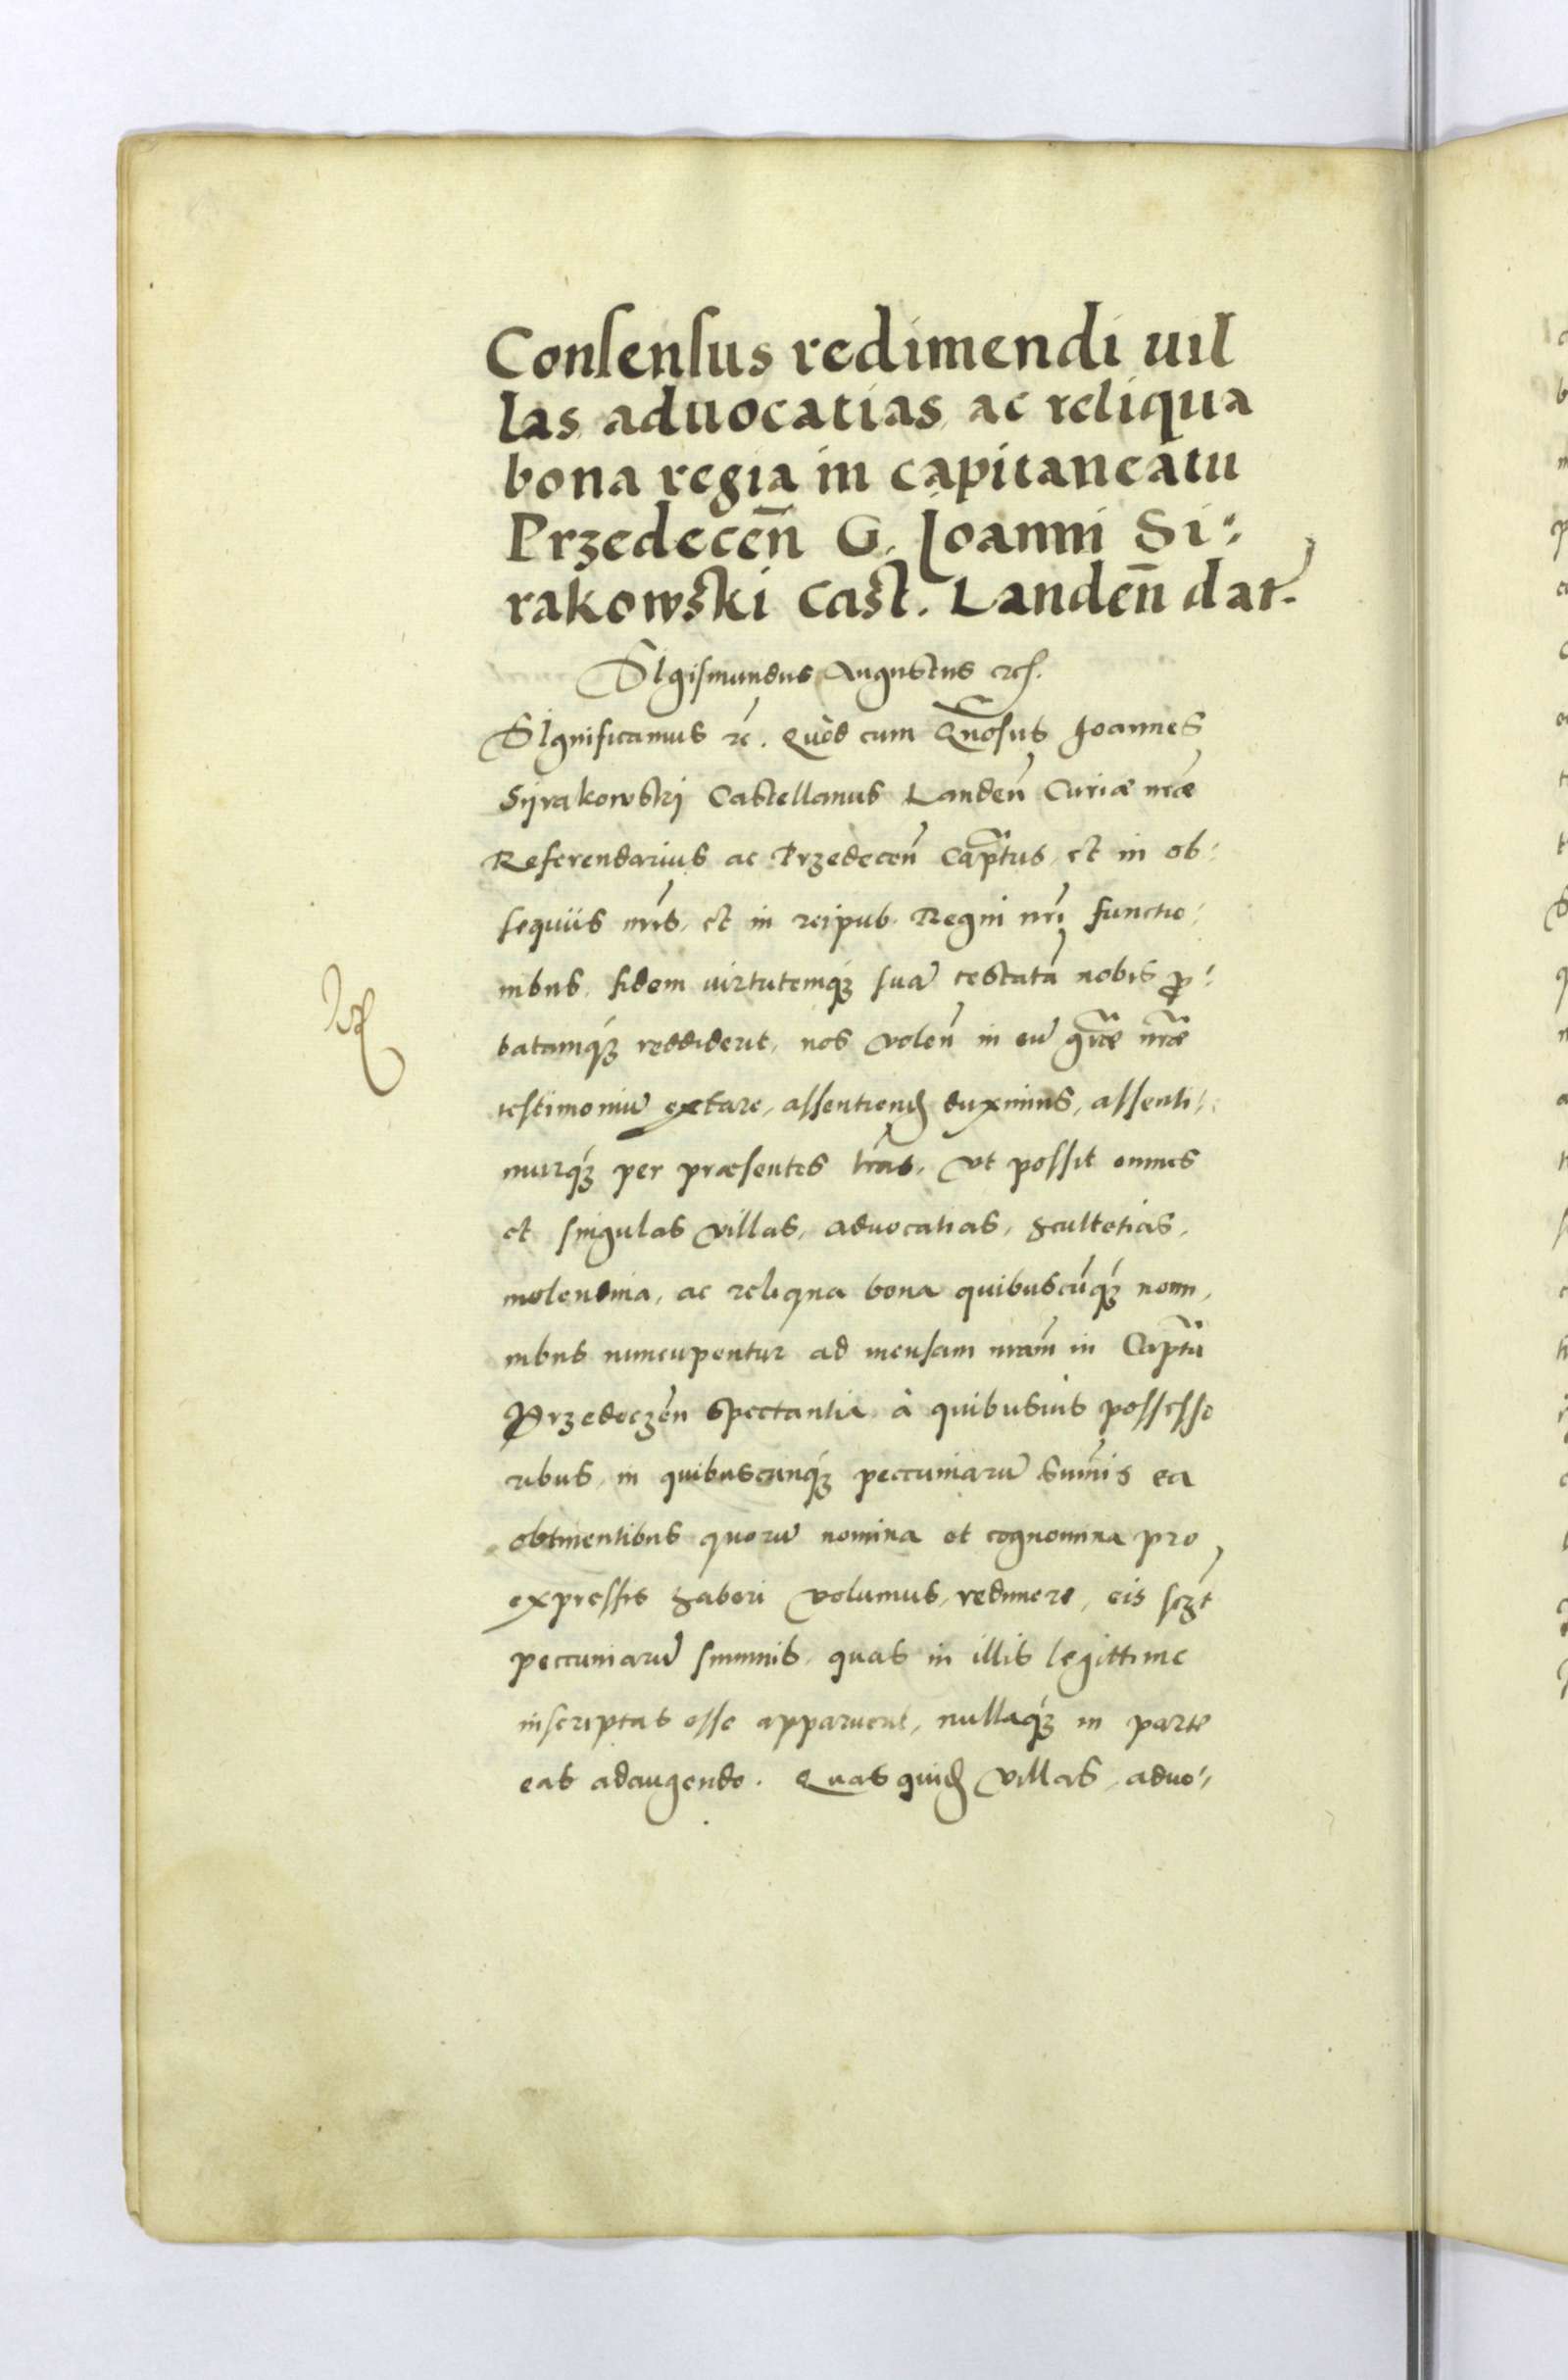 Consensus redimendi uil
las, aduocatias, ac reliqua
bona regia in capitaneatu
Przedecen̄ G. Joanni Si:
rakowski Cast. Landen̄ dat̄.
SIgismundus Augustus etc.
SIgnificamus etc. Quòd cum Gn̄osus Joannes
Syrakowskj Castellanus Landen̄ Curiæ nr̄æ
Referendarius ac Przedecen̄ Cap̄tus, et in ob:
sequiis nr̄is, et in reipub. Regni nr̄i functio:
nibus, fidem uirtutemq́ꝫ suā testatā nobis ꝓ:
batamq́ꝫ reddiderit, nos volen̄ in eū gr̄æ nr̄æ
testimoniū extare, assentiend̄ duximus, assenti:
murq́ꝫ per præsentes lr̄as, Vt possit omnes
et singulas villas, aduocatias, scultetias,
molendina, ac reliqua bona quibuscūq́ꝫ nomi,
nibus nuncupentur ad mensam nr̄am in Cap̄tu
Przedeczen̄ spectantia, à quibusuis possesso
ribus, in quibuscunq́ꝫ peccuniarū sum̄is ea
obtinentibus quorū nomina et cognomina pro
expressis haberi volumus, redimere, eis scꝫt
peccuniarū summis, quas in illis legittime
inscriptas esse apparuerit, nullaq́ꝫ in parte
eas adaugendo. Quas quid̄ villas, aduo: